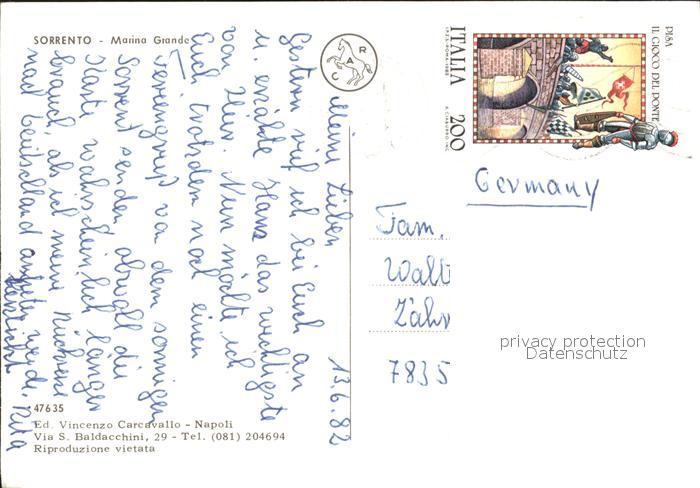 SORRENTO - Marina Grande
13.6.82
Meine Lieben
Gestern rief ich bei Euch an
u. erzählte Hans das wichtigste
von hier. Nun möchte ich
Euch trotzdem noch einen
Feriengruß von dem sonnigen
Sorrent senden, obwohl die
Karte wahrscheinlich länger
braucht, als ich meine Rückreise
nach Deutschland antreten werde.
Herzlichst Rita
47635
Ed. Vincenzo Carcavallo - Napoli
Via S. Baldacchini, 29 - Tel. (081) 204694
Riproduzione vietata
RAC
PISA
IL GIOCO DEL PONTE
ITALIA 200
Germany
Fam.
Walt
Zähr
7835
privacy protection
Datenschutz